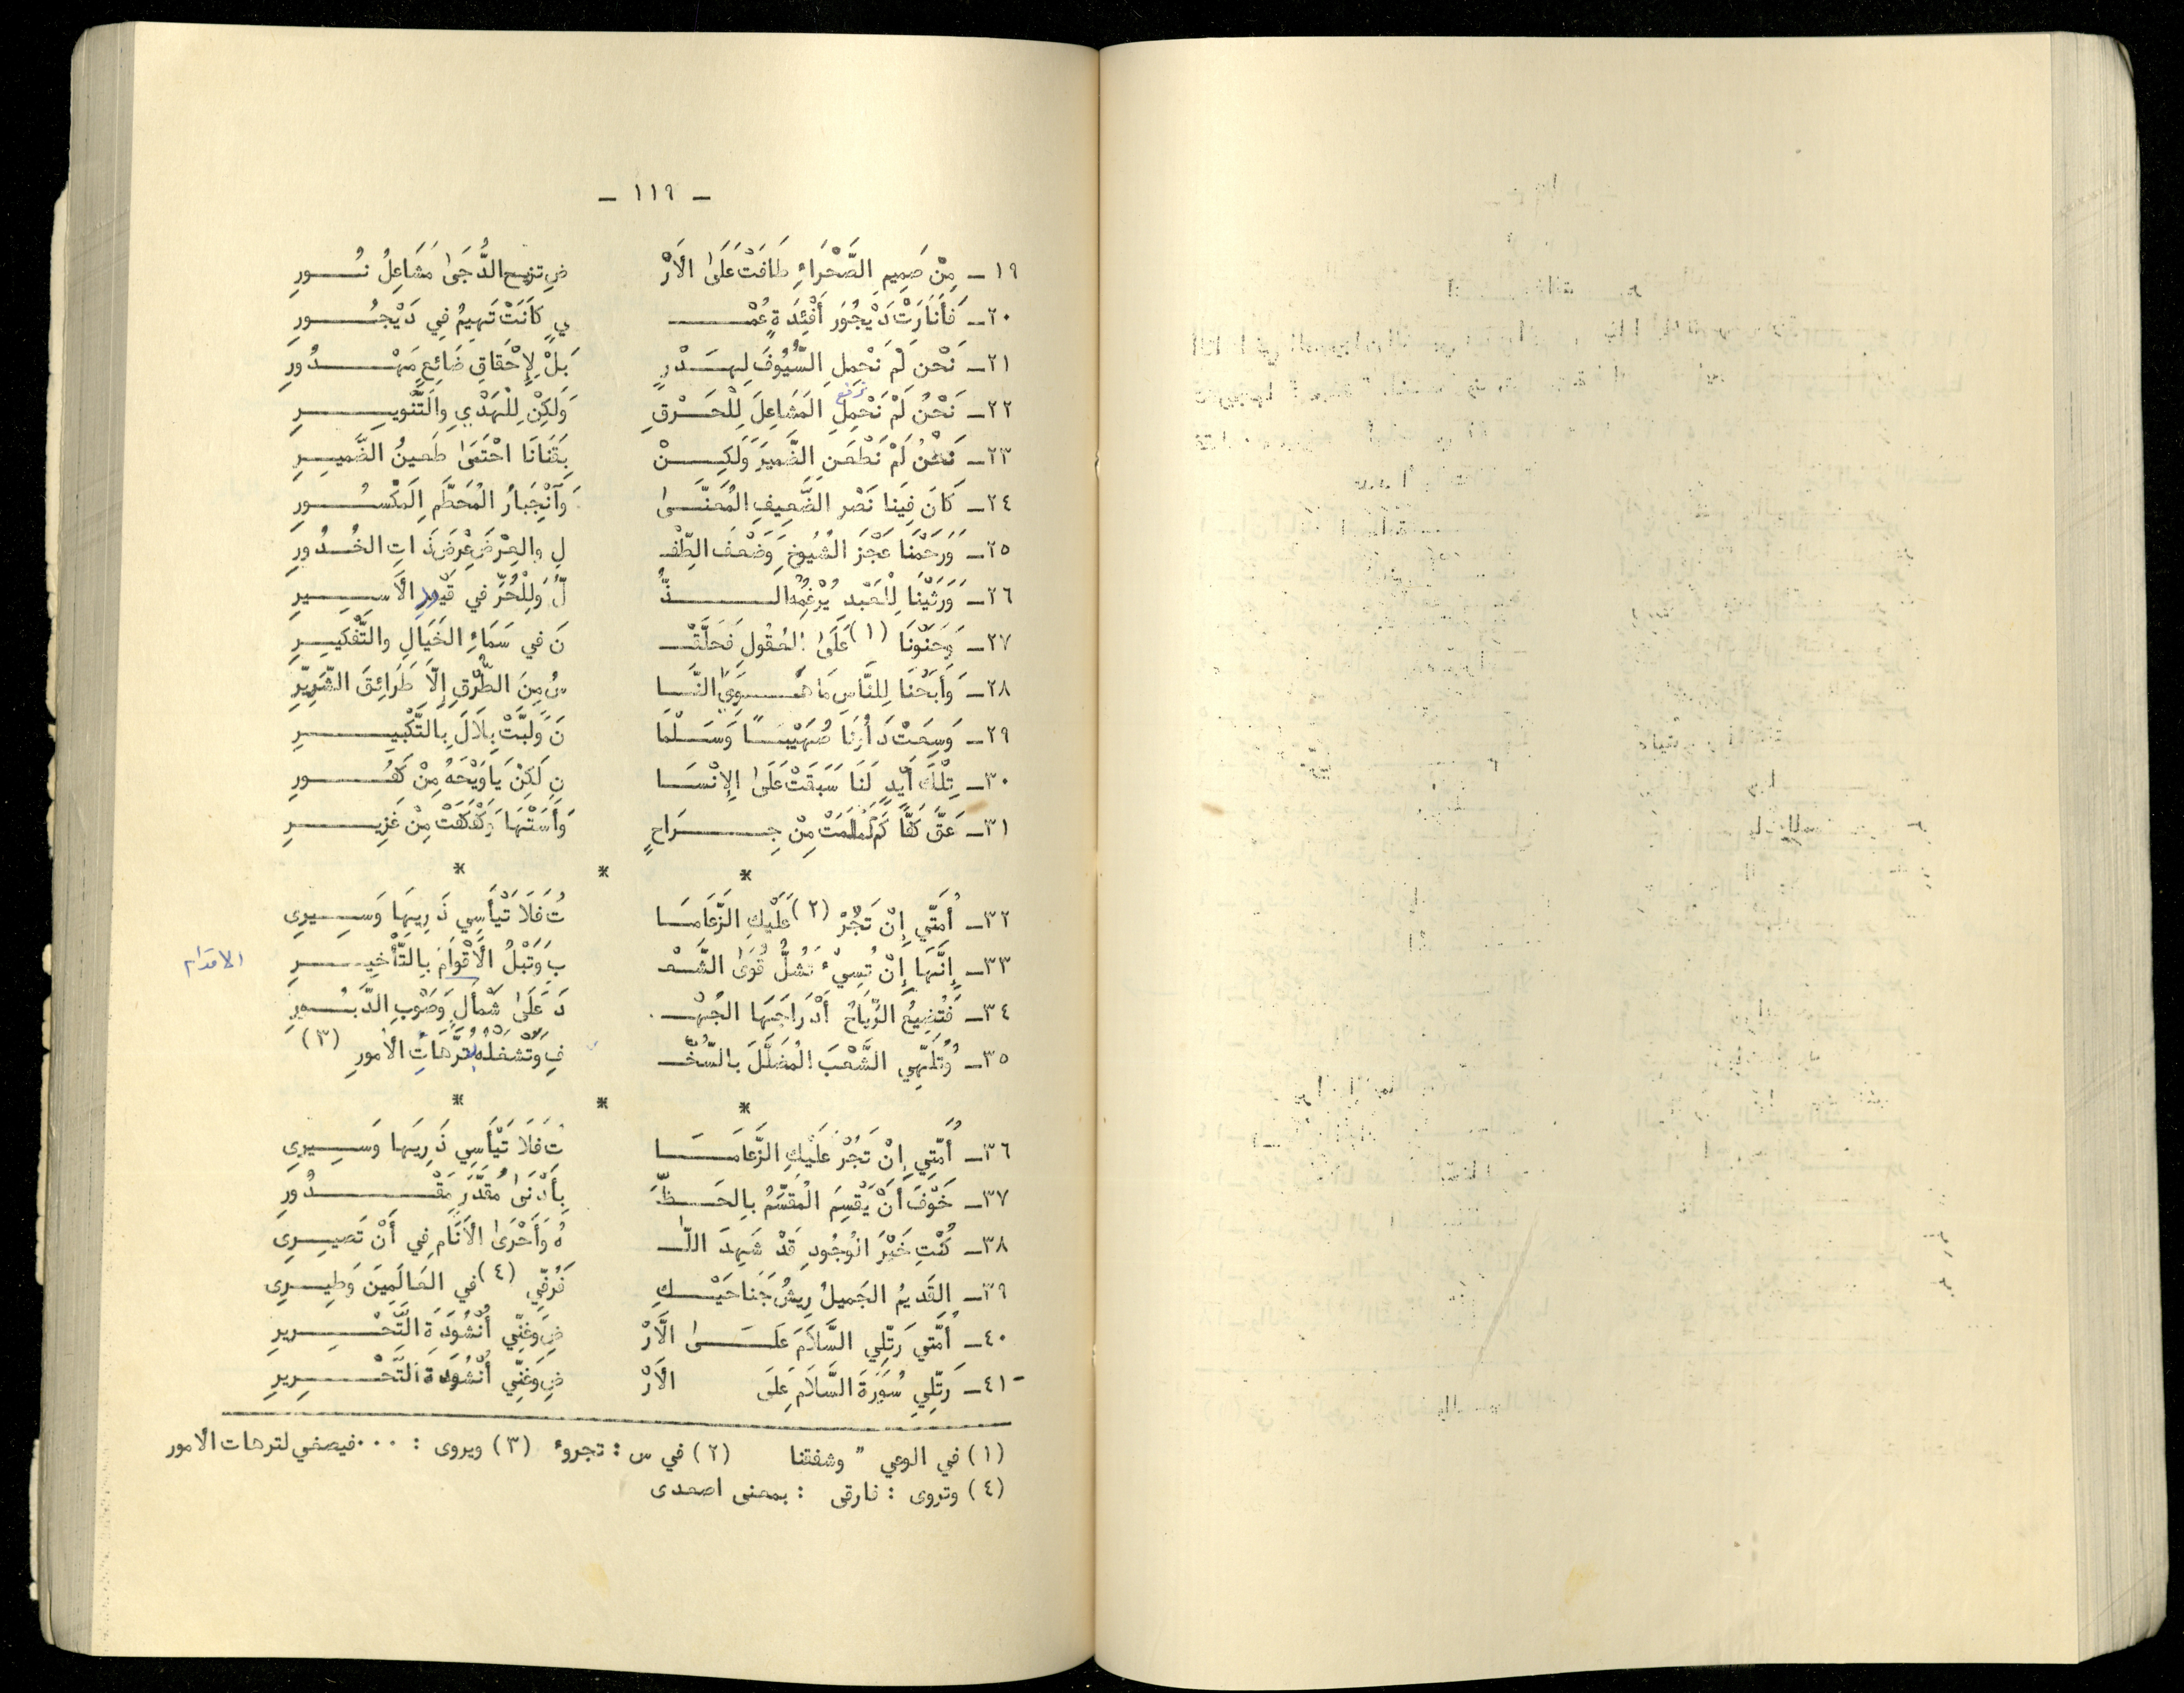 - ١١٩ -
١٩ـ مِنْ صَمِيمِ الصَّحْرَاءِ طَافَتْ عَلَى الأَرْ ضِ تزيح الدُّجَىٰ مَشَاعِلُ نُـــورِ
٢٠ـ فَأَنَارَتْ دَيْجُورَ أَفْئِدَةٍ عُمْـــ ـيٍ كَانَتْ تَهِيمُ فِي دَيْجُـــورِ
٢١ـ نَحْنُ لَمْ نَحْمِلِ السُّيُوفَ لِهَـــدْرٍ بَلْ لِإِحْقَاقِ ضَائِعٍ مَهْـــدُورِ
ترفع
٢٢ـ نَحْنُ لَمْ نَحْمِلِ المَشَاعِلَ لِلْحَـــرْقِ وَلَكِنْ لِلْهَدْيِ وَالتَّنْوِيـــرِ
٢٣ـ نَحْنُ لَمْ نَطْعَنِ الضَّمِيرَ وَلَكِـــنْ بِقَنَانَا احْتَمَىٰ طَعِينُ الضَّمِيـــرِ
٢٤ـ كَانَ فِينَا نَصْرُ الضَّعِيفِ المُعَنَّـــىٰ وَانْجِبَارُ المُحَطَّمِ المَكْسُـــورِ
٢٥ـ وَرَحَمْنَا عَجْزَ الشُّيُوخِ وَضَعْفَ الطِّفْـ لِ والعِرْضَ عِرْضَ ذَاتِ الخُـــدُورِ
٢٦ـ وَرَثَيْنَا لِلْعَبْدِ يُرْغِمُهُ الـــذُّ لُّ وَلِلْحُرِّ في قُيُودِ الأَسِـــيرِ
٢٧ـ وَحَنَوْنَا (١) عَلَىٰ العُقُولِ فَحَلَّقْـــ ـنَ في سَمَاءِ الخَيَالِ والتَّفْكِيـــرِ
٢٨ـ وَأَبَحْنَا لِلنَّاسِ مَا هَـــوِيَ النَّـــا سُ مِنَ الطُّرْقِ إِلَّا طَرَائِقَ الشِّرِّيرِ
٢٩ـ وَسِعَتْ دَارُنَا صُهَيْبـــاً وَسَـــلْمَا نَ وَلَبَّتْ بِلَالَ بِالتَّكْبِيـــرِ
٣٠ـ تِلْكَ أَيْدٍ لَنَا سَبَقَتْ عَلَىٰ الإِنْسَـــا نِ لَكِنْ يَا وَيْحَهُ مِنْ كَفُـــورِ
٣١ـ عَقَّ كَفًّا كَمْ لَمْلَمَتْ مِنْ جِـــرَاحٍ وَأَسَتْهَا وَكَفْكَفَتْ مِنْ غَزِيـــرِ
* * *
٣٢ـ أُمَّتِي إِنْ تَجُرْ (٢) عَلَيْكِ الزَّعَامَـــا تُ فَلَا تَيْأَسِي ذَرِيهَا وَسِـــيرِى
٣٣ـ إِنَّهَا إِنْ تُسِيْءْ تَشُلُّ قُوَىٰ الشَّعْـ ـبِ وَتَبْلُ الأَقْوَامَ بِالتَّأْخِيـــرِ الاقدام
٣٤ـ فَتُضِيعُ الرِّيَاحُ أَدْرَاجَهَا الجُهْـــ ـدَ عَلَىٰ شَمْأَلٍ وَصَوْبِ الدَّبُـــورِ
٣٥ـ وَتُلَهِّي الشَّعْبَ المُضَلَّلَ بالسُّخْـــ ـفِ وَتَشْغَلْهُ بِتُرَّهَاتِ الأُمُورِ (٣)
* * *
٣٦ـ أُمَّتِي إِنْ تَجُرْ عَلَيْكِ الزَّعَامَـــا تُ فَلَا تَيْأَسِي ذَرِيهَا وَسِـــيرِى
٣٧ـ خَوْفَ أَنْ يَقْسِمَ المُقَسِّمُ بِالحَـــظِّ بِأَدْنَىٰ مُقَدَّرٍ مَقْـــدُورِ
٣٨ـ كُنْتِ خَيْرَ الوُجُودِ قَدْ شَهِدَ اللّـــ ـهُ وَأَحْرَىٰ الأَنَامِ فِي أَنْ تَصِيـــرِى
٣٩ـ القَدِيمُ الجَمِيلُ رِيشُ جَنَاحَيْـــكِ فَرُقِّي (٤) في العَالَمِينَ وَطِيـــرِى
٤٠ـ أُمَّتِي رَتِّلِي السَّلَامَ عَلَـــىٰ الأَرْ ضِ وَغَنِّي أُنْشُودَةَ التَّحْـــرِيرِ
٤١ـ رَتِّلِي سُورَةَ السَّلَامِ عَلَى الأَرْ ضِ وَغَنِّي أُنْشُودَةَ التَّحْـــرِيرِ
(١) في الوعي " وشفقتنا (٢) في س : تجروء (٣) ويروى : ... فيصغي لترهات الأمور
(٤) وتروى : فارقى : بمعنى اصعدى